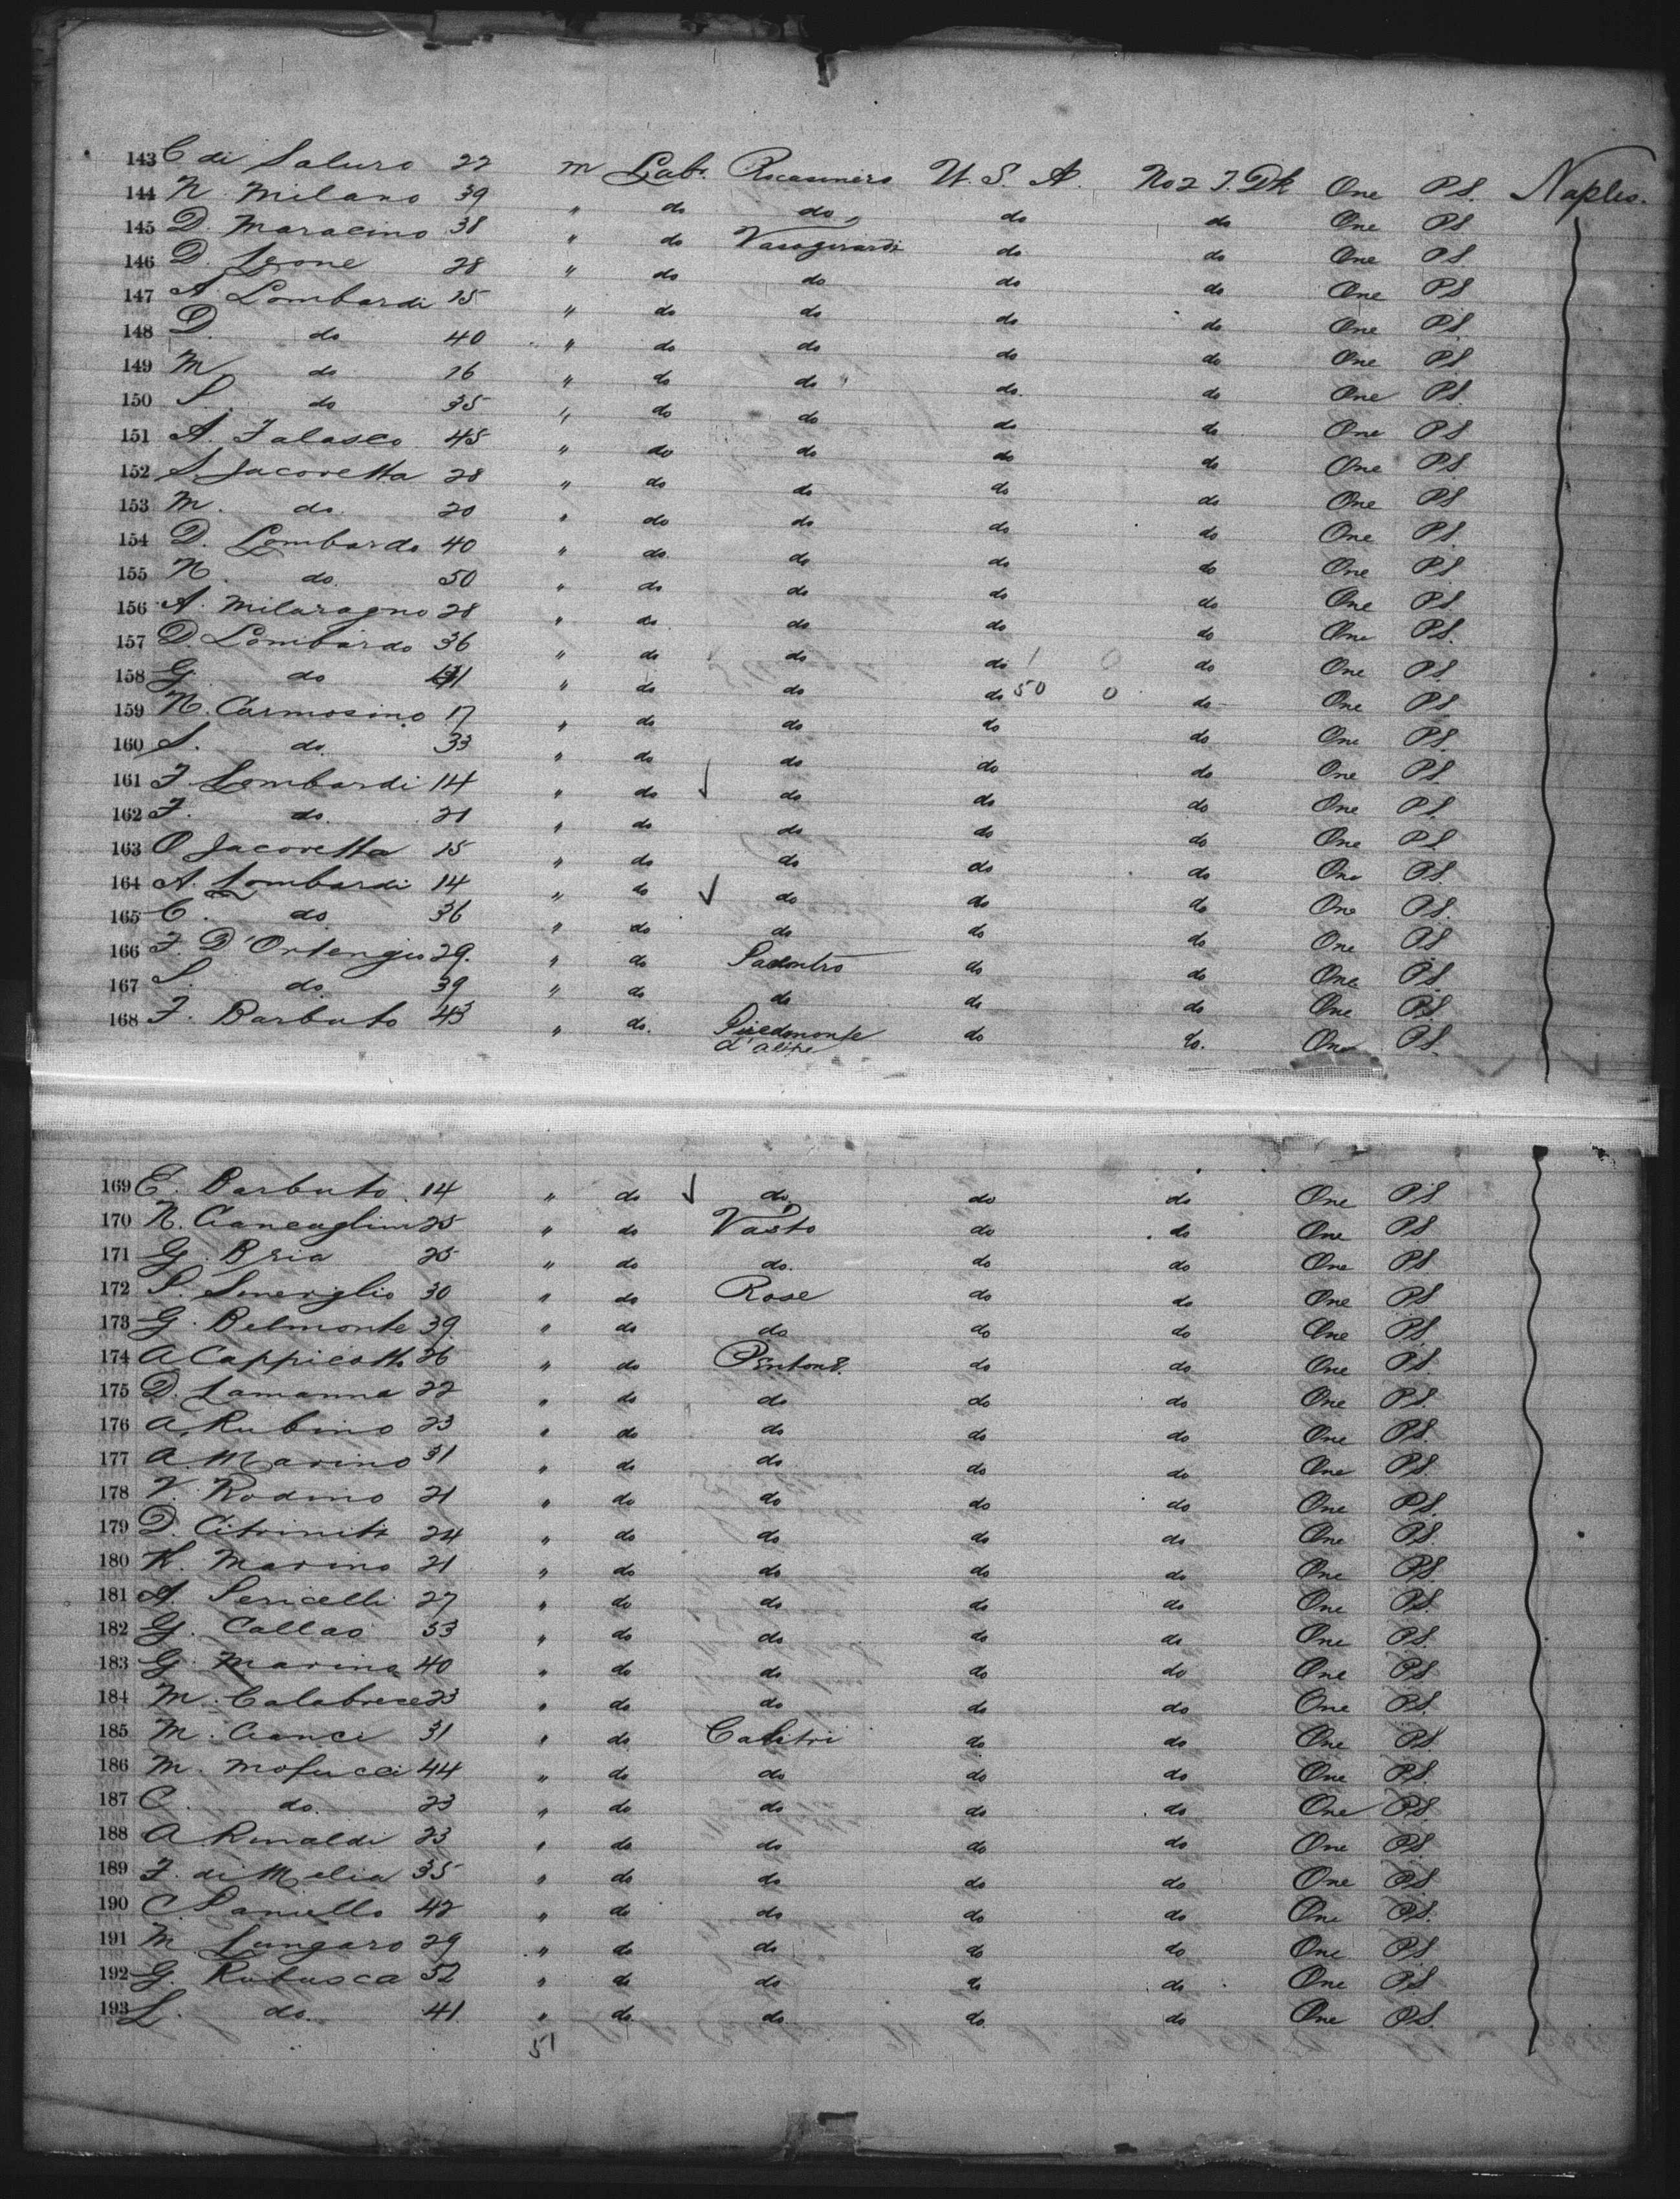 143 C di Saluro 22 m Lab. Rocasinero U. S. A. No 2 T. Dk One P.S. Naples.
144 N. Milano 39 " do do do do One PS
145 D. Maracino 38 " do Vasogirardi do do One PS.
146 D. Leone 28 " do do do do One PS
147 A. Lombardi 15 " do do do do One PS
148 D. do 40 " do do do do One PS
149 M do 16 " do do do. do One PS.
150 S. do 35 " do do do do One PS
151 A. Falasco 45 " do do do do One PS
152 S. Jacovetta 28 " do do do do One PS
153 M. do. 20 " do do do do One PS.
154 D. Lombardo 40 " do. do do do One PS
155 N. do. 50 " do do do do One PS
156 A. Milaragno 28 " do. do do do One PS.
157 D. Lombardo 36 " do do do 1 0 do One PS.
158 G. do 41 " do do do 50 0 do One PS
159 N. Carmosino 17 " do do do do One PS.
160 S. do. 33 " do do do do One PS.
161 F Lombardi 14 " do do do do One PS.
162 F. do. 21 " do do do do One PS.
163 O Jacovetta 15 " do do do do One PS.
164 A. Lombardi 14 " do do do do One PS.
165 C. do 36 " do do do do One PS
166 F. D'Ortengio 29. " do do do One PS
167 S. do. 39 " do do do do One PS
168 F. Barbuto 43 " do. Piedmonte d'alife do do. One PS.
169 E. Barbuto. 14 " do do do do One PS
170 N. Ciancaglini 25 " do Vasto do do One PS
171 G. Bria 25 " do do. do do One PS
172 S. Smeriglio 30 " do Rose do do One PS
173 G. Belmonte 39. " do do do do One PS
174 A Cappicotto 26 " do Pentone. do do One PS.
175 D. Lamanna 22 " do do do do One PS.
176 A. Rubino 23 " do do do do One PS.
177 A. Marino 31 " do do do do One PS.
178 V. Rodino 21 " do do do do One PS.
179 D. Citriniti 24 " do do do do One PS.
180 N. Marino 21 " do do do do One PS.
181 A. Sericelli 27 " do do do do One PS.
182 G. Callao 33 " do do do do One PS.
183 G. Marino 40 " do do do do One PS
184 M. Calabrese 23 " do do do do One PS.
185 M. Cianci 31 " do Calitri do do One PS
186 M. Mafucci 44 " do do do do One PS.
187 C. do. 23 " do do do do One PS
188 A Rinaldi 23 " do do do do One PS.
189 F. di Melia 35 " do do do do One PS
190 C. Daniello 42 " do do do do One PS.
191 M. Lungaro 29 " do do do do One PS
192 G. Rubusca 52 " do do do do One PS
193 L. do. 41 " do. do. do. do One PS.
51